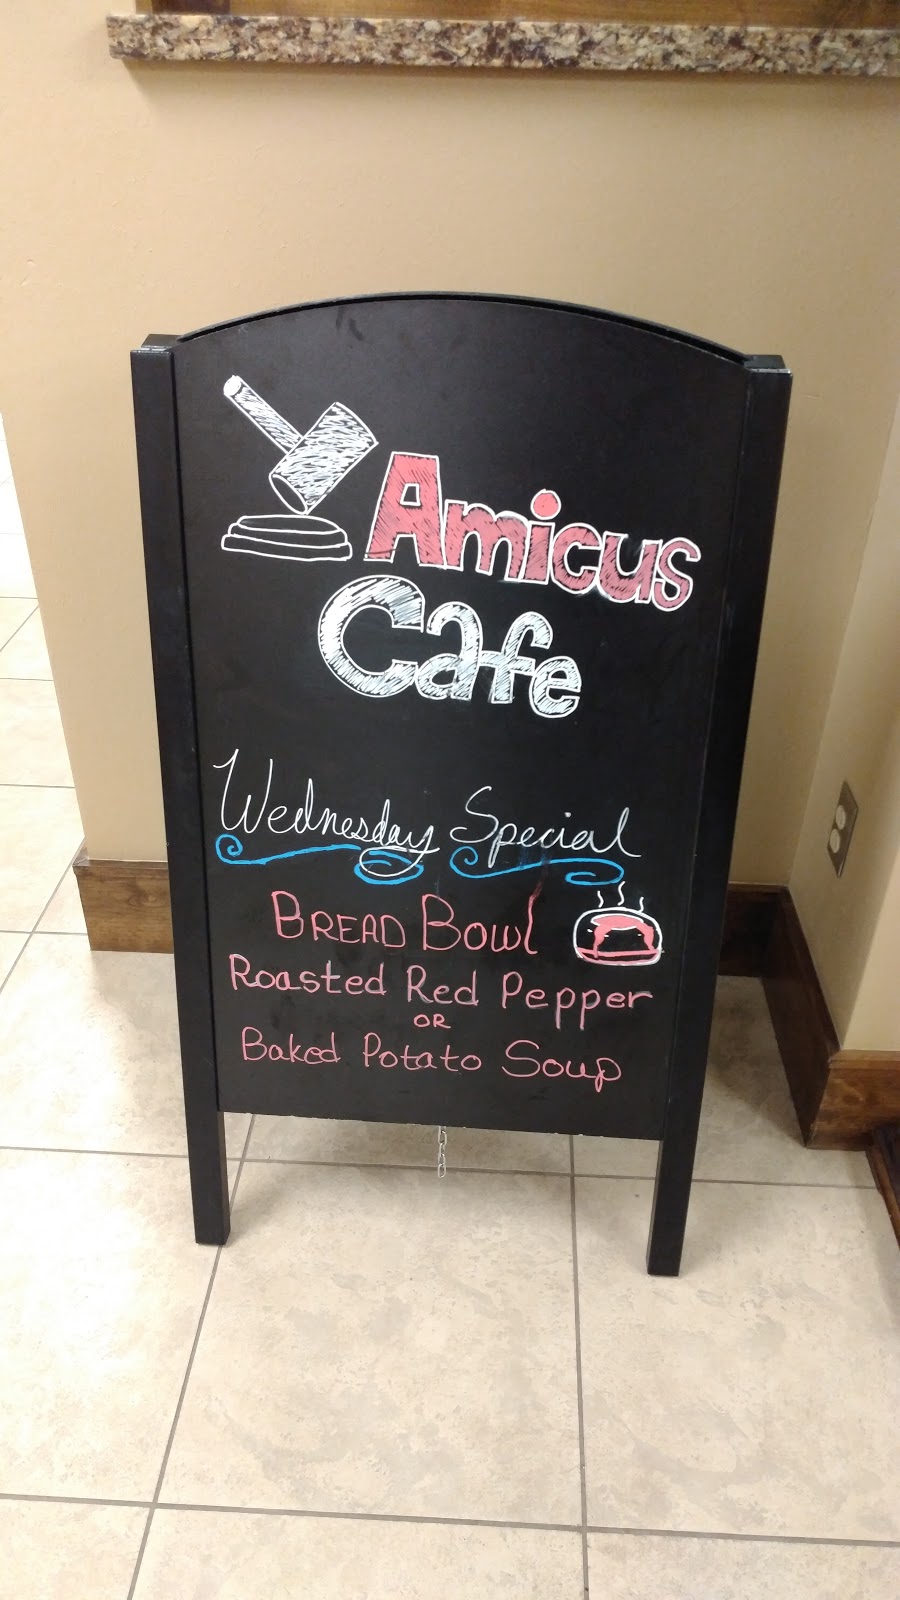 Amicus
Cafe
Wednesday Special
BREAD BOWl
Roasted Red Pepper
OR
Baked Potato Soup